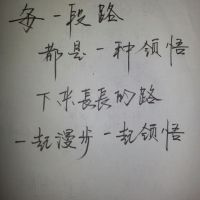 每一段路
都是一种领悟
下来長長的路
一起漫步一起领悟